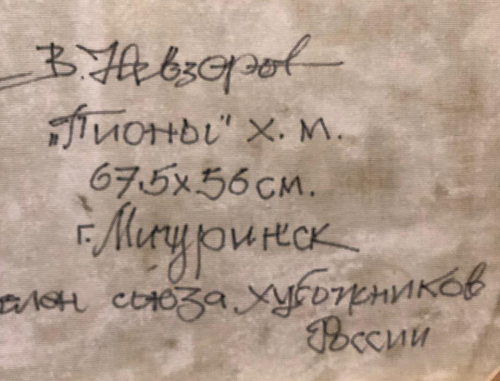 В. Невзоров
„Пионы" х. м.
67.5х.56 см.
г. Мичуринск
член союза художников
России